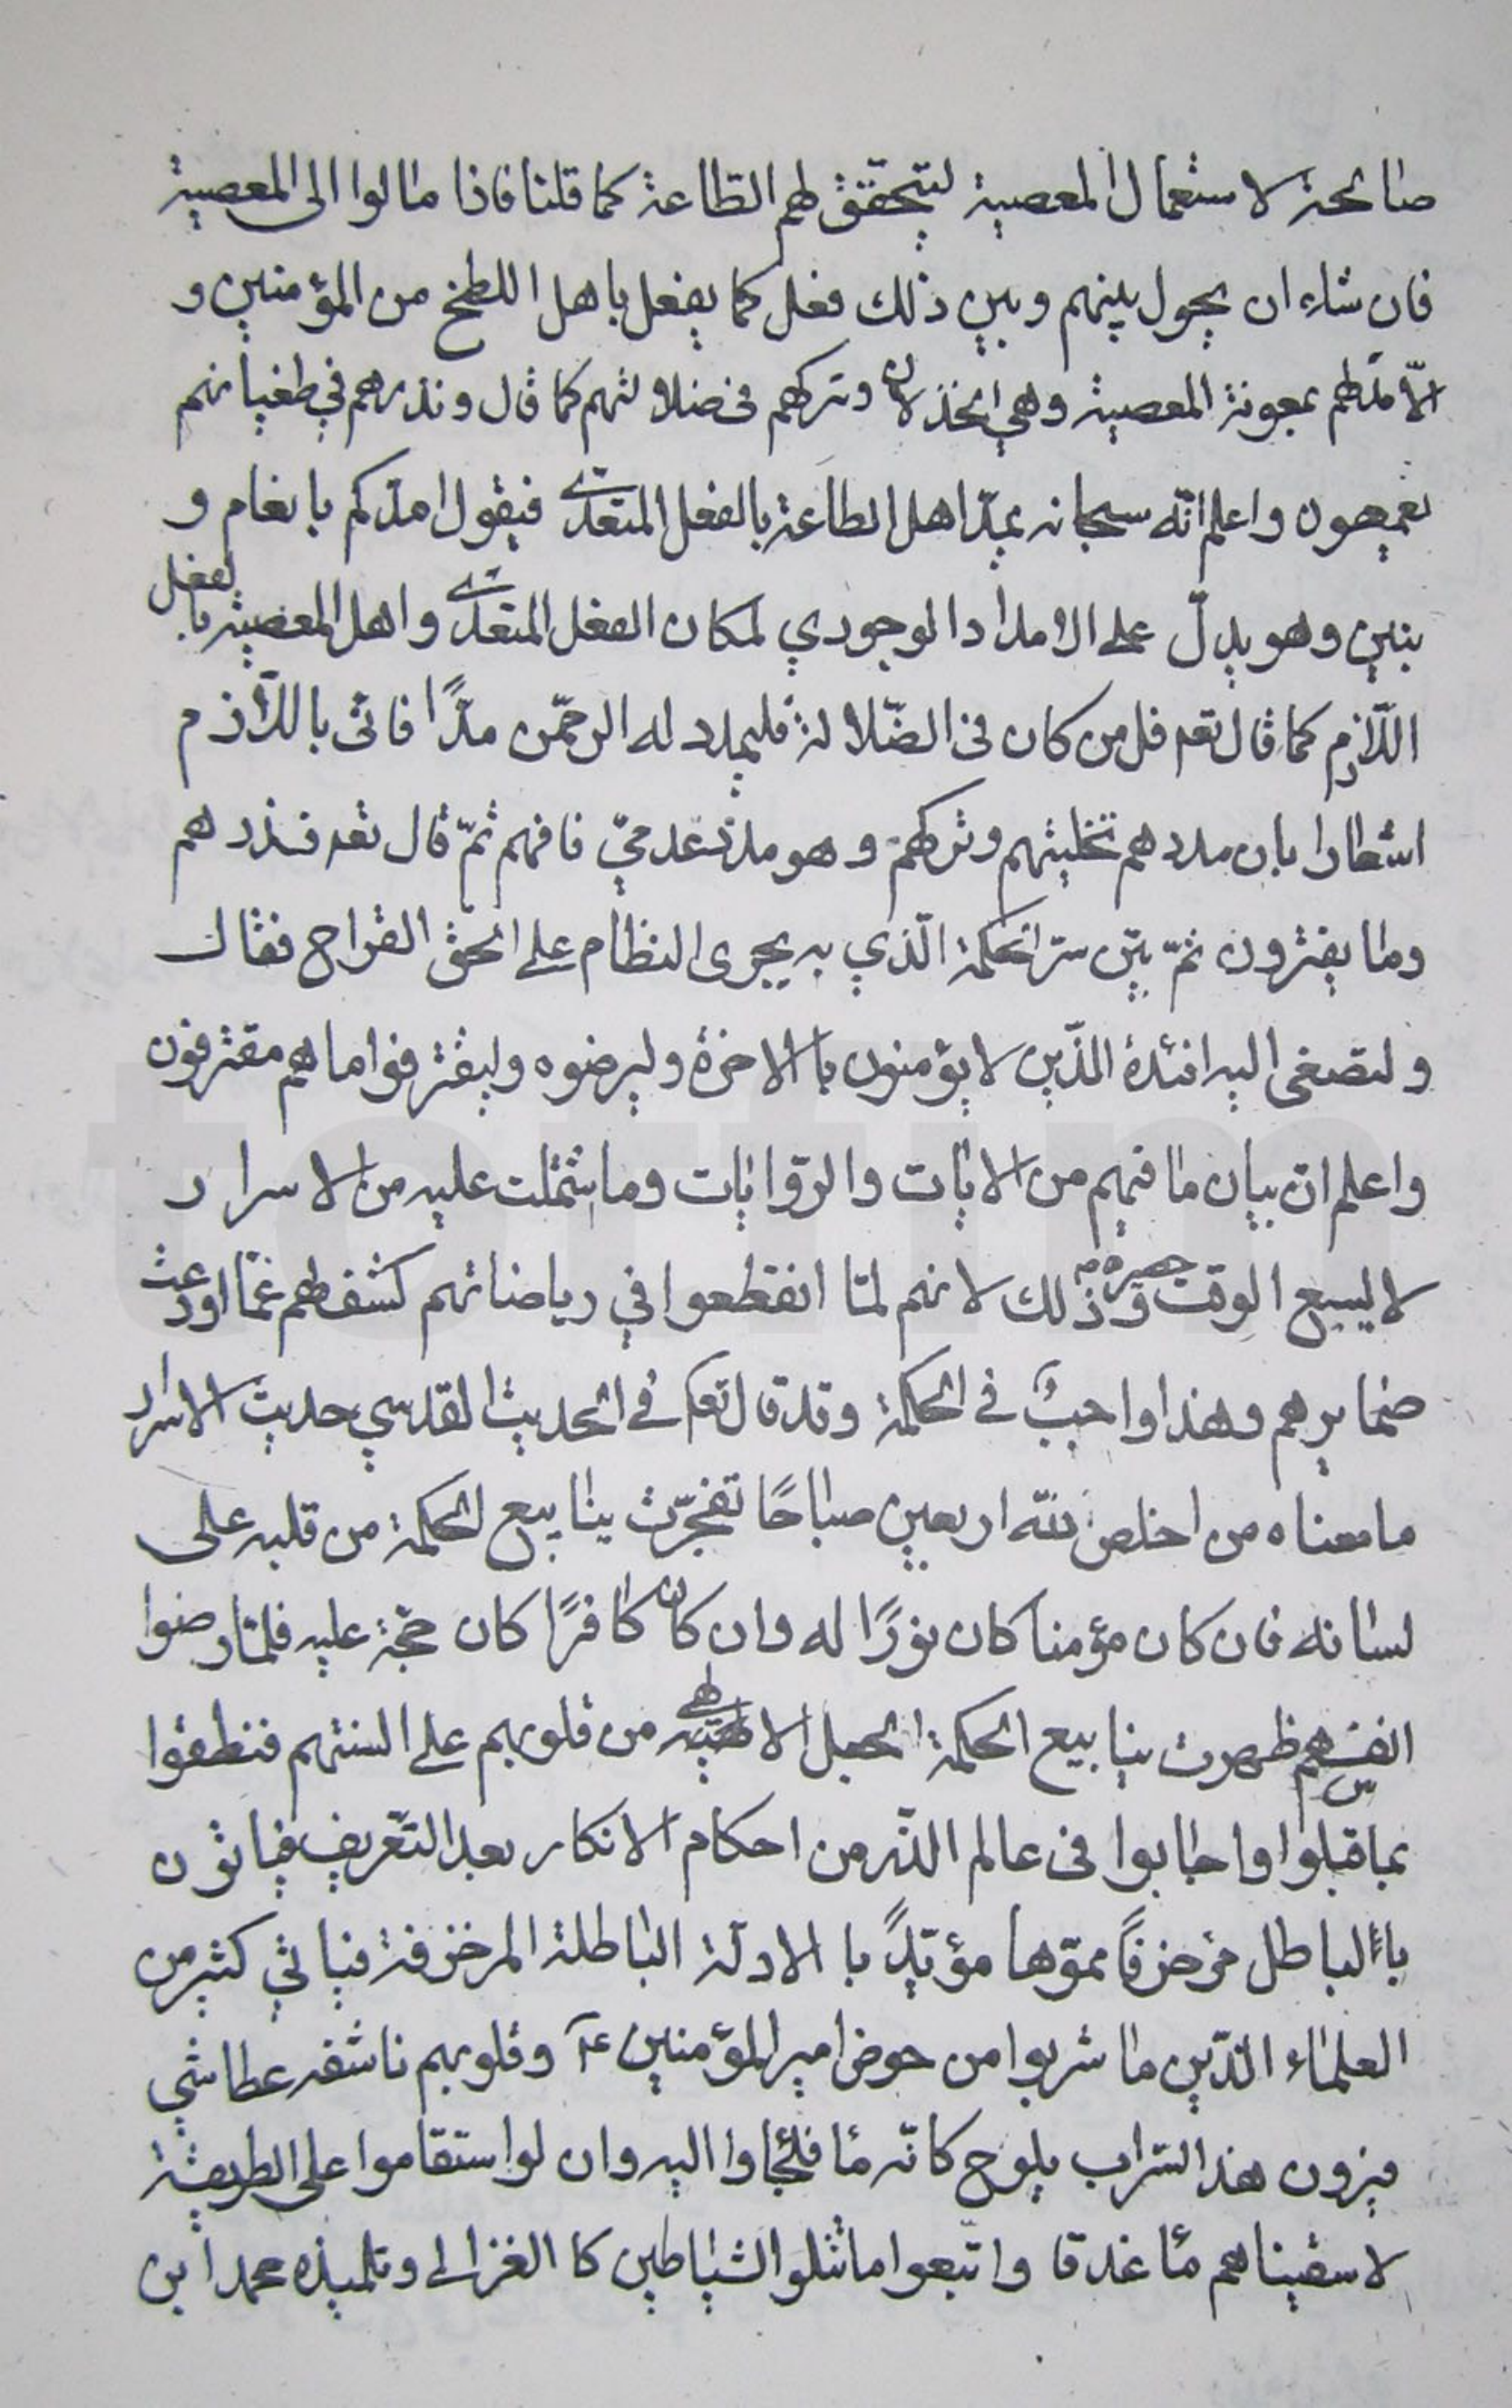 صالحة لاستعمال المعصية ليتحقق لهم الطاعة كما قلنا فاذا مالوا الى المعصية
فان شاء ان يحول بينهم وبين ذلك فعل كما يفعل باهل اللطخ من المؤمنين و
الّا مدّهم بمعونة المعصية وهي الخذلان وتركهم فى ضلالتهم كما قال ونذرهم في طغيانهم
يعمهون واعلم انّه سبحانه يمدّ اهل الطاعة بالفعل المتعدّى فيقول امدّكم بانعام و
بنين وهو يدلّ على الامداد الوجودي لمكان الفعل المتعدّى واهل المعصية بالفعل
اللّازم كما قال تعه قل من كان فى الضّلالة فليمدد له الرحمّن مدًّا فاتى باللّازم
اشعارا بان مددهم تخليتهم وتركهم وهو مدد عدميّ فافهم ثمّ قال تعه فذرهم
وما يفترون ثمّ بيّن سرّ الحكمة الّذي به يجرى النظام على الحق القراح فقال
ولتصغى اليه افئدة الذّين لا يؤمنون باالاخرة وليرضوه وليقترفوا ما هم مقترفون
واعلم انّ بيان ما فيهم من الايات والرّوايات وما شتملت عليه من الاسرار
لا ليسع الوقت حصره وذلك لانهم لمّا انقطعوا في رياضاتهم كشف لهم عمّا اودعت
ضمايرهم وهذا واجبٌ فى الحكمة وقد قال تعه فى الحديث القدسي حديث الاسرار
ما معناه من اخلص للّه اربعين صباحًا تفجّرت ينابيع الحكمة من قلبه على
لسانه فان كان مؤمنا كان نورًا له وان كان كافرًا كان حجّة عليه فلمّا رضوا
انفسهم ظهرت ينابيع الحكمة الجهل الالهى من قلوبهم على السنتهم فنطقوا
بما قبلوا واجابوا فى عالم الذّر من احكام الانكار بعد التّعريف فياتون
باالباطل مزخرفًا مموّها مؤيّدًا باالادلّة الباطلة المزخرفة فياتي كثير من
العلماء الذّين ما شربوا من حوض امير المؤمنين ع وقلوبهم ناشفه عطاشي
فيرون هذا السّراب يلوح كانّه ماء فلجاوا اليه وان لو استقاموا على الطريقة
لاسقيناهم ماء غدقا واتّبعوا ما تتلوا الشياطين كا الغزالى وتلميذه محمد ابن